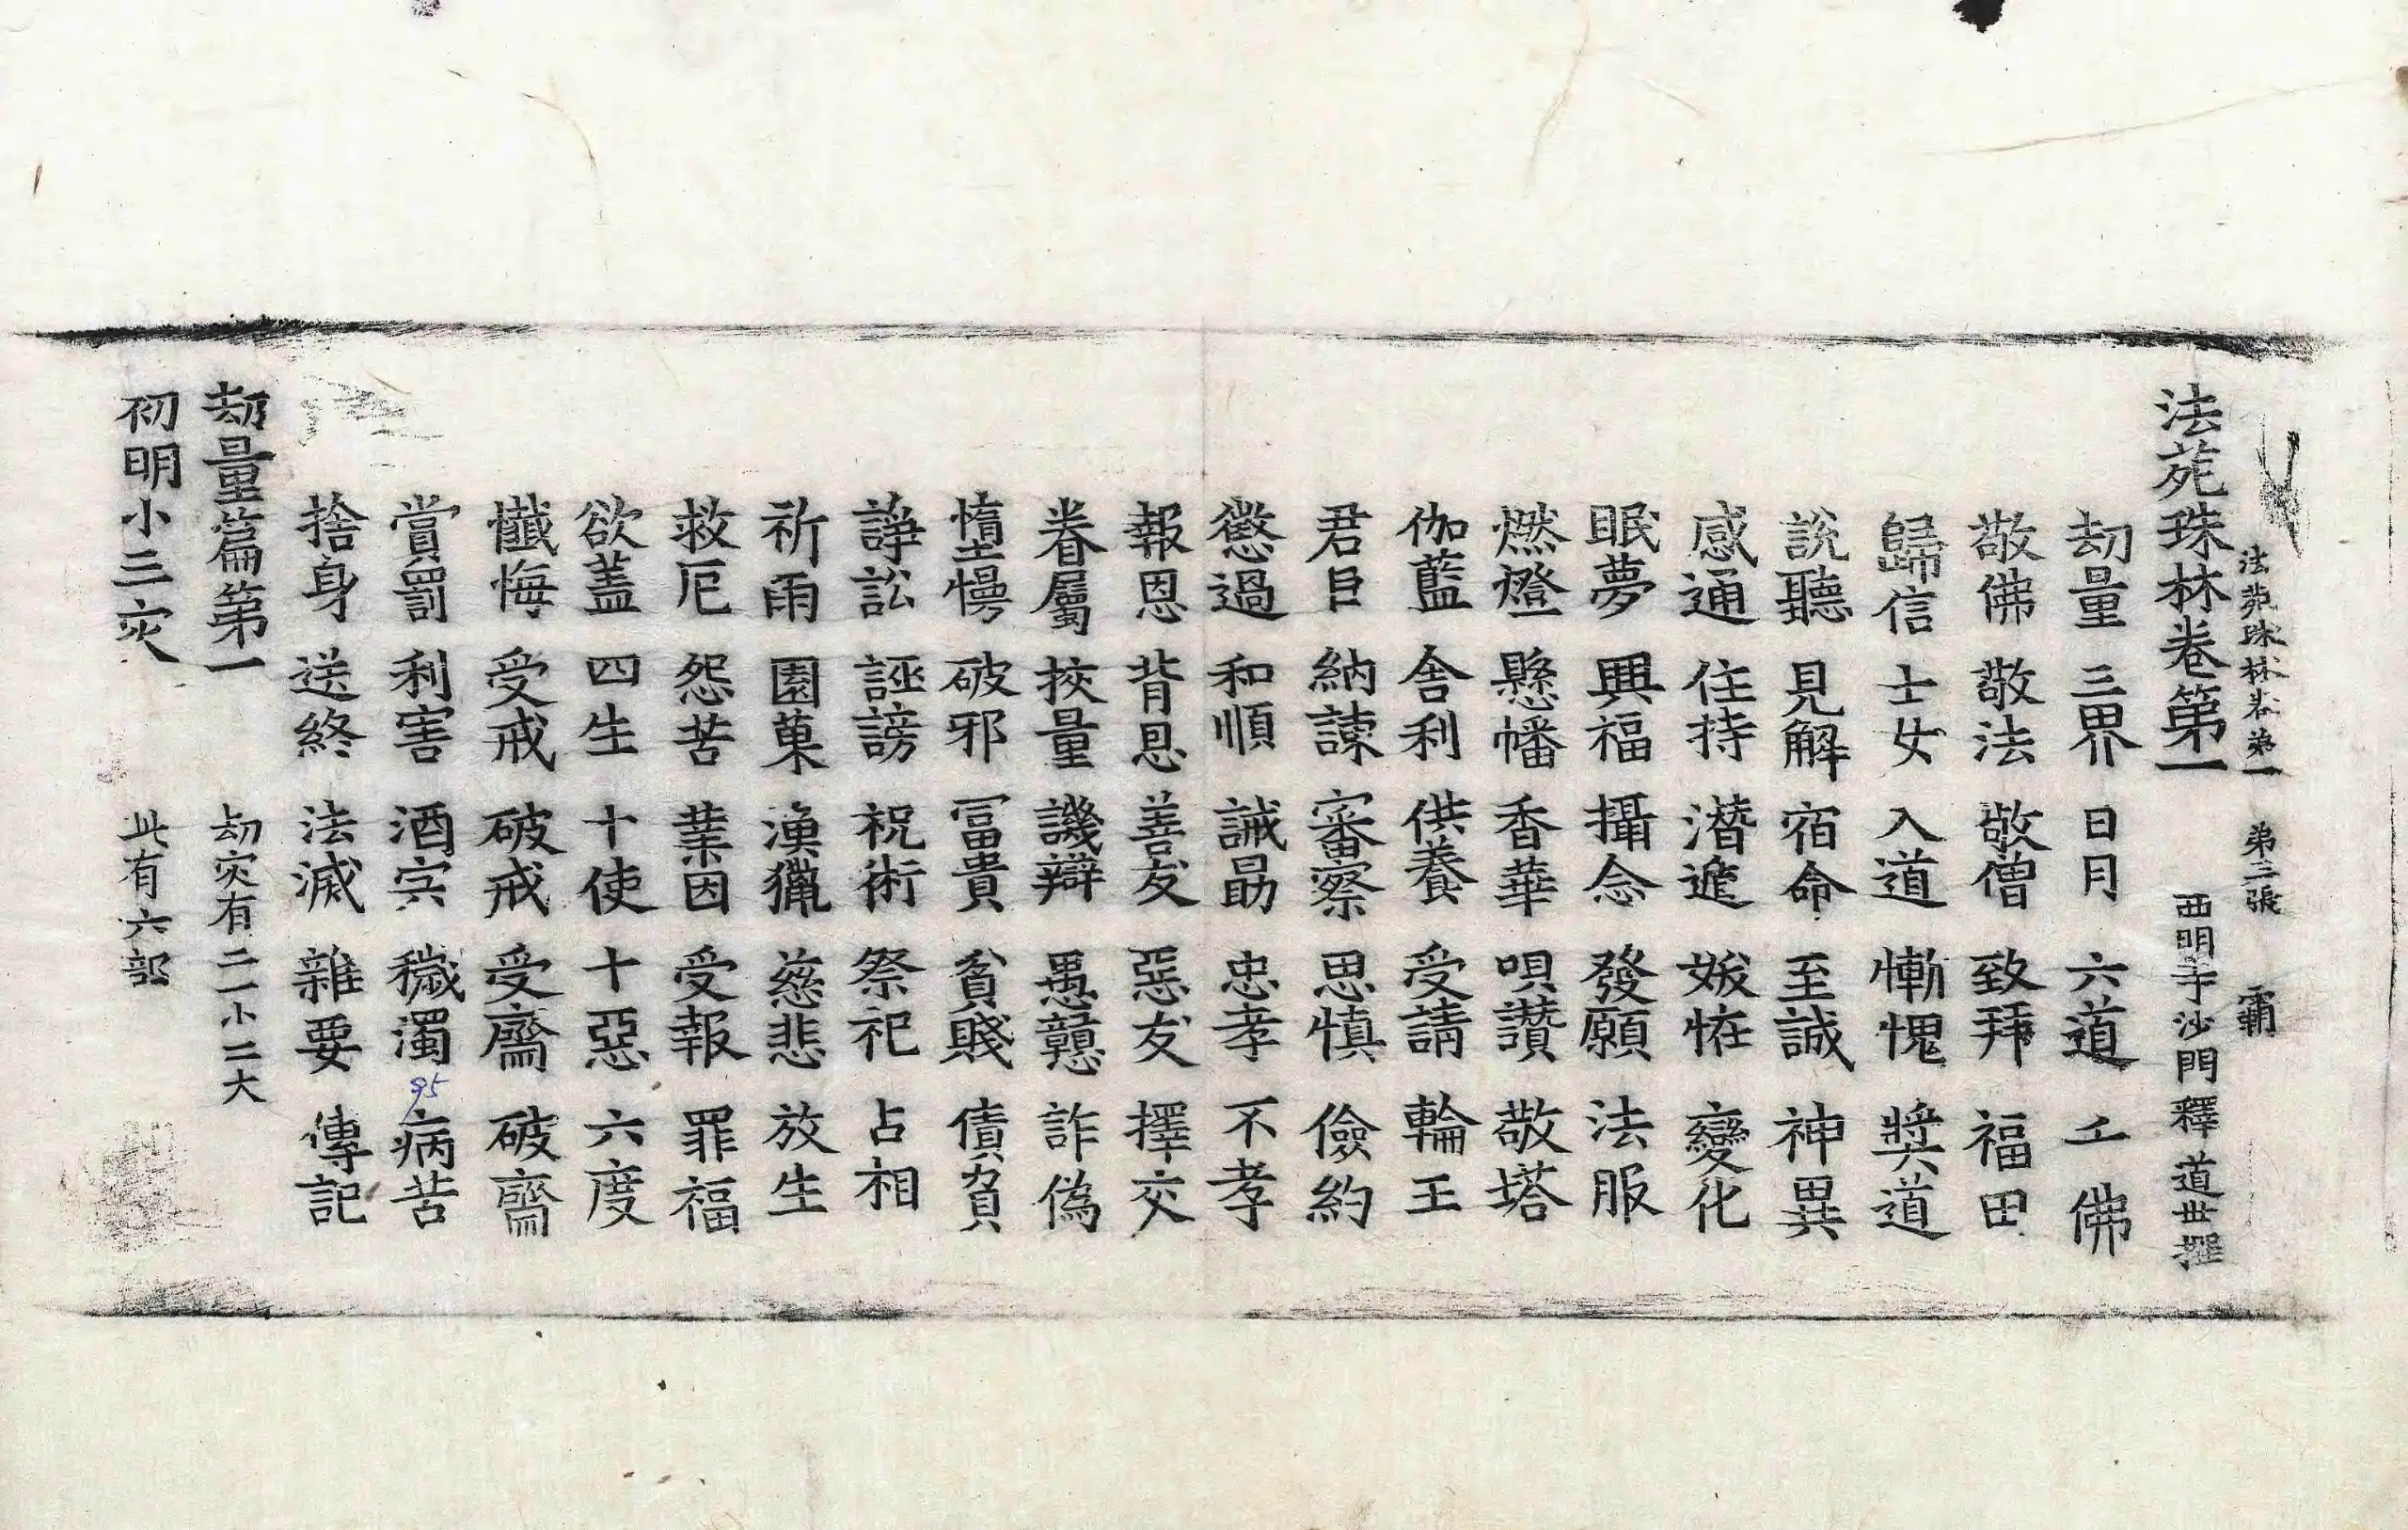 法苑珠林卷第一 第三張 覇
法苑珠林卷第一 西明寺沙門釋道世撰
劫量 三界 日月 六道 千佛
敬佛 敬法 敬僧 致拜 福田
歸信 士女 入道 慚愧 獎道
說聽 見解 宿命 至誠 神異
感通 住持 潛遁 妖怪 變化
眠夢 興福 攝念 發願 法服
燃燈 懸幡 香華 唄讚 敬塔
伽藍 舍利 供養 受請 輪王
君臣 納諫 審察 思慎 儉約
懲過 和順 誡勗 忠孝 不孝
報恩 背恩 善友 惡友 擇交
眷屬 挍量 譏辯 愚戇 詐偽
憜慢 破邪 冨貴 貧賤 債負
諍訟 誣謗 祝術 祭祀 占相
祈雨 園菓 漁獵 慈悲 放生
救厄 怨苦 業因 受報 罪福
欲蓋 四生 十使 十惡 六度
懺悔 受戒 破戒 受齋 破齋
賞罰 利害 酒宍 穢濁 95 病苦
捨身 送終 法滅 雜要 傳記
劫量篇第一 劫灾有二一小二大
初明小三灾 此有六部